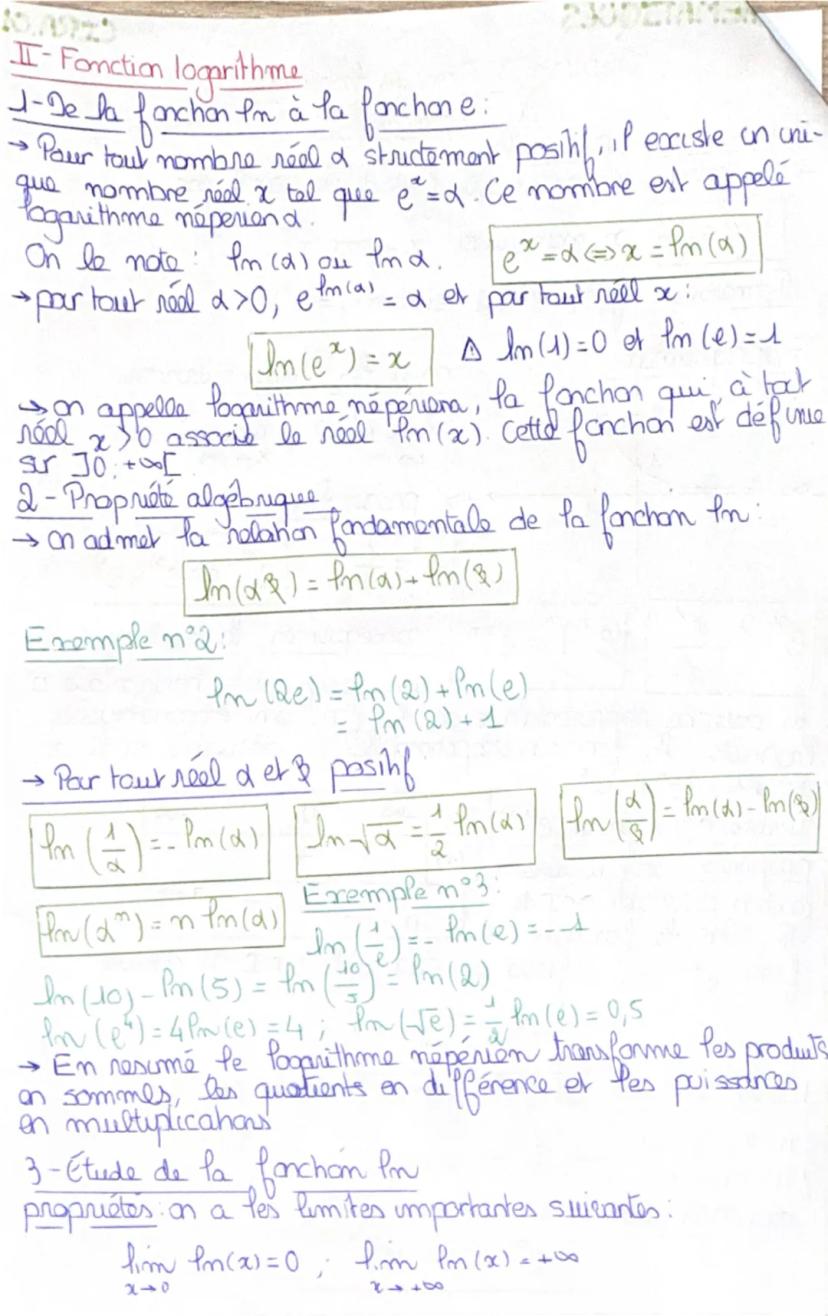 II- Fonction logarithme
1-De la fonction ln à la fonction e:
→ Pour tout nombre réel α strictement positif, il existe un uni-
que nombre réel x tel que e^x=α. Ce nombre est appelé
logarithme népérien α.
On le note: ln(α) ou ln α. e^x=α⇔x=ln(α)
→ pour tout réel α>0, e^ln(α) = α et pour tout réel x:
ln(e^x)=x ⚠ ln(1)=0 et ln(e)=1
→ on appelle logarithme népérien, la fonction qui, à tout
réel x>0 associe le réel ln(x). Cette fonction est définie
sur ]0;+∞[
2-Propriété algébrique
→ on admet la relation fondamentale de la fonction ln:
ln(αβ)=ln(α)+ln(β)
Exemple n°2:
ln(2e)=ln(2)+ln(e)
= ln(2)+1
→ Pour tout réel α et β positif
ln(1/α)=-ln(α) ln√α=1/2 ln(α) ln(α/β)=ln(α)-ln(β)
ln(α^n)=n ln(α) Exemple n°3:
ln(1/e)=-ln(e)=-1
ln(10)-ln(5)=ln(10/5)=ln(2)
ln(e^4)=4ln(e)=4 ; ln(√e)=1/2 ln(e)=0,5
→ En resumé le logarithme népérien transforme les produits
en sommes, les quotients en différence et les puissances
en multiplications
3-Étude de la fonction ln
propriétés: on a les limites importantes suivantes:
lim x→0 ln(x)=0 ; lim x→+∞ ln(x)=+∞